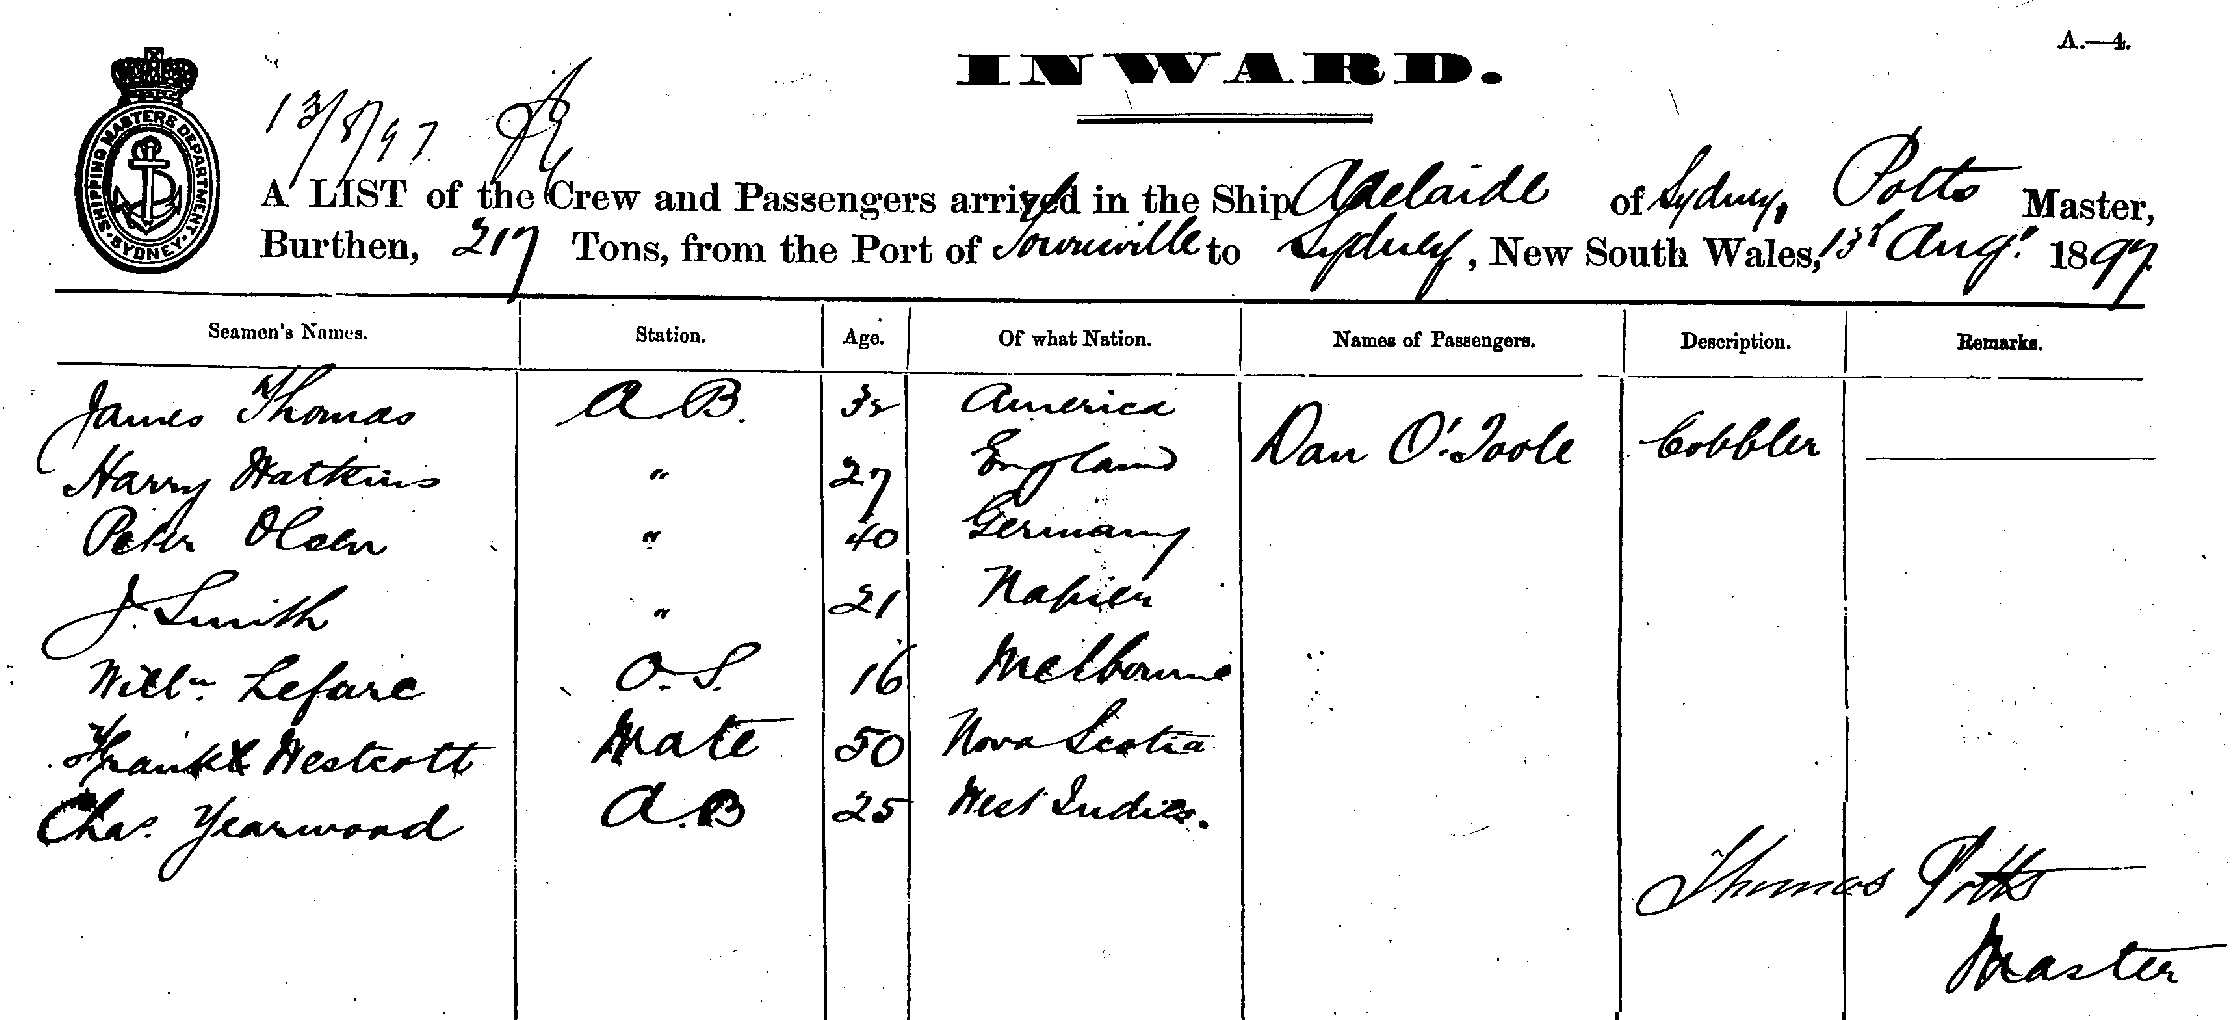 A.—4.
INWARD.
SHIPPING MASTERS DEPARTMENT. SYDNEY.
13/8/97
A LIST of the Crew and Passengers arrived in the Ship Adelaide of Sydney, Potts Master,
Burthen, 217 Tons, from the Port of Townville to Sydney, New South Wales, 13th Augt. 1897.
Seamen's Names. Station. Age. Of what Nation. Names of Passengers. Description. Remarks.
James Thomas A.B. 32 America
Dan O'Toole Cobbler
Harry Watkins " 27 England
Peter Olsen " 40 Germany
J. Smith " 21 Napier
Willm Lefare O.S. 16 Melbourne
Frank Westcott Mate 50 Nova Scotia
Chas. Yearwood A.B 25 West Indies.
Thomas Potts
Master